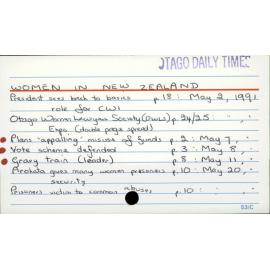 OTAGO DAILY TIMES
WOMEN IN NEW ZEALAND
President sees back to basics p.18 : May 2, 1991
role for CWI
Otago Women Lawyers Society (OWLS) p.24/25 : " , "
Expo (double page spread)
Plans "appalling" misuse of funds p.2 : May 7, "
Vote scheme defended p.3 : May 8, "
Gravy train (leader) p.8 : May 11, "
Arohata gives many women prisoners p.10 : May 20, "
security
Prisoners victim to common abuse, p.10 : " "
531C